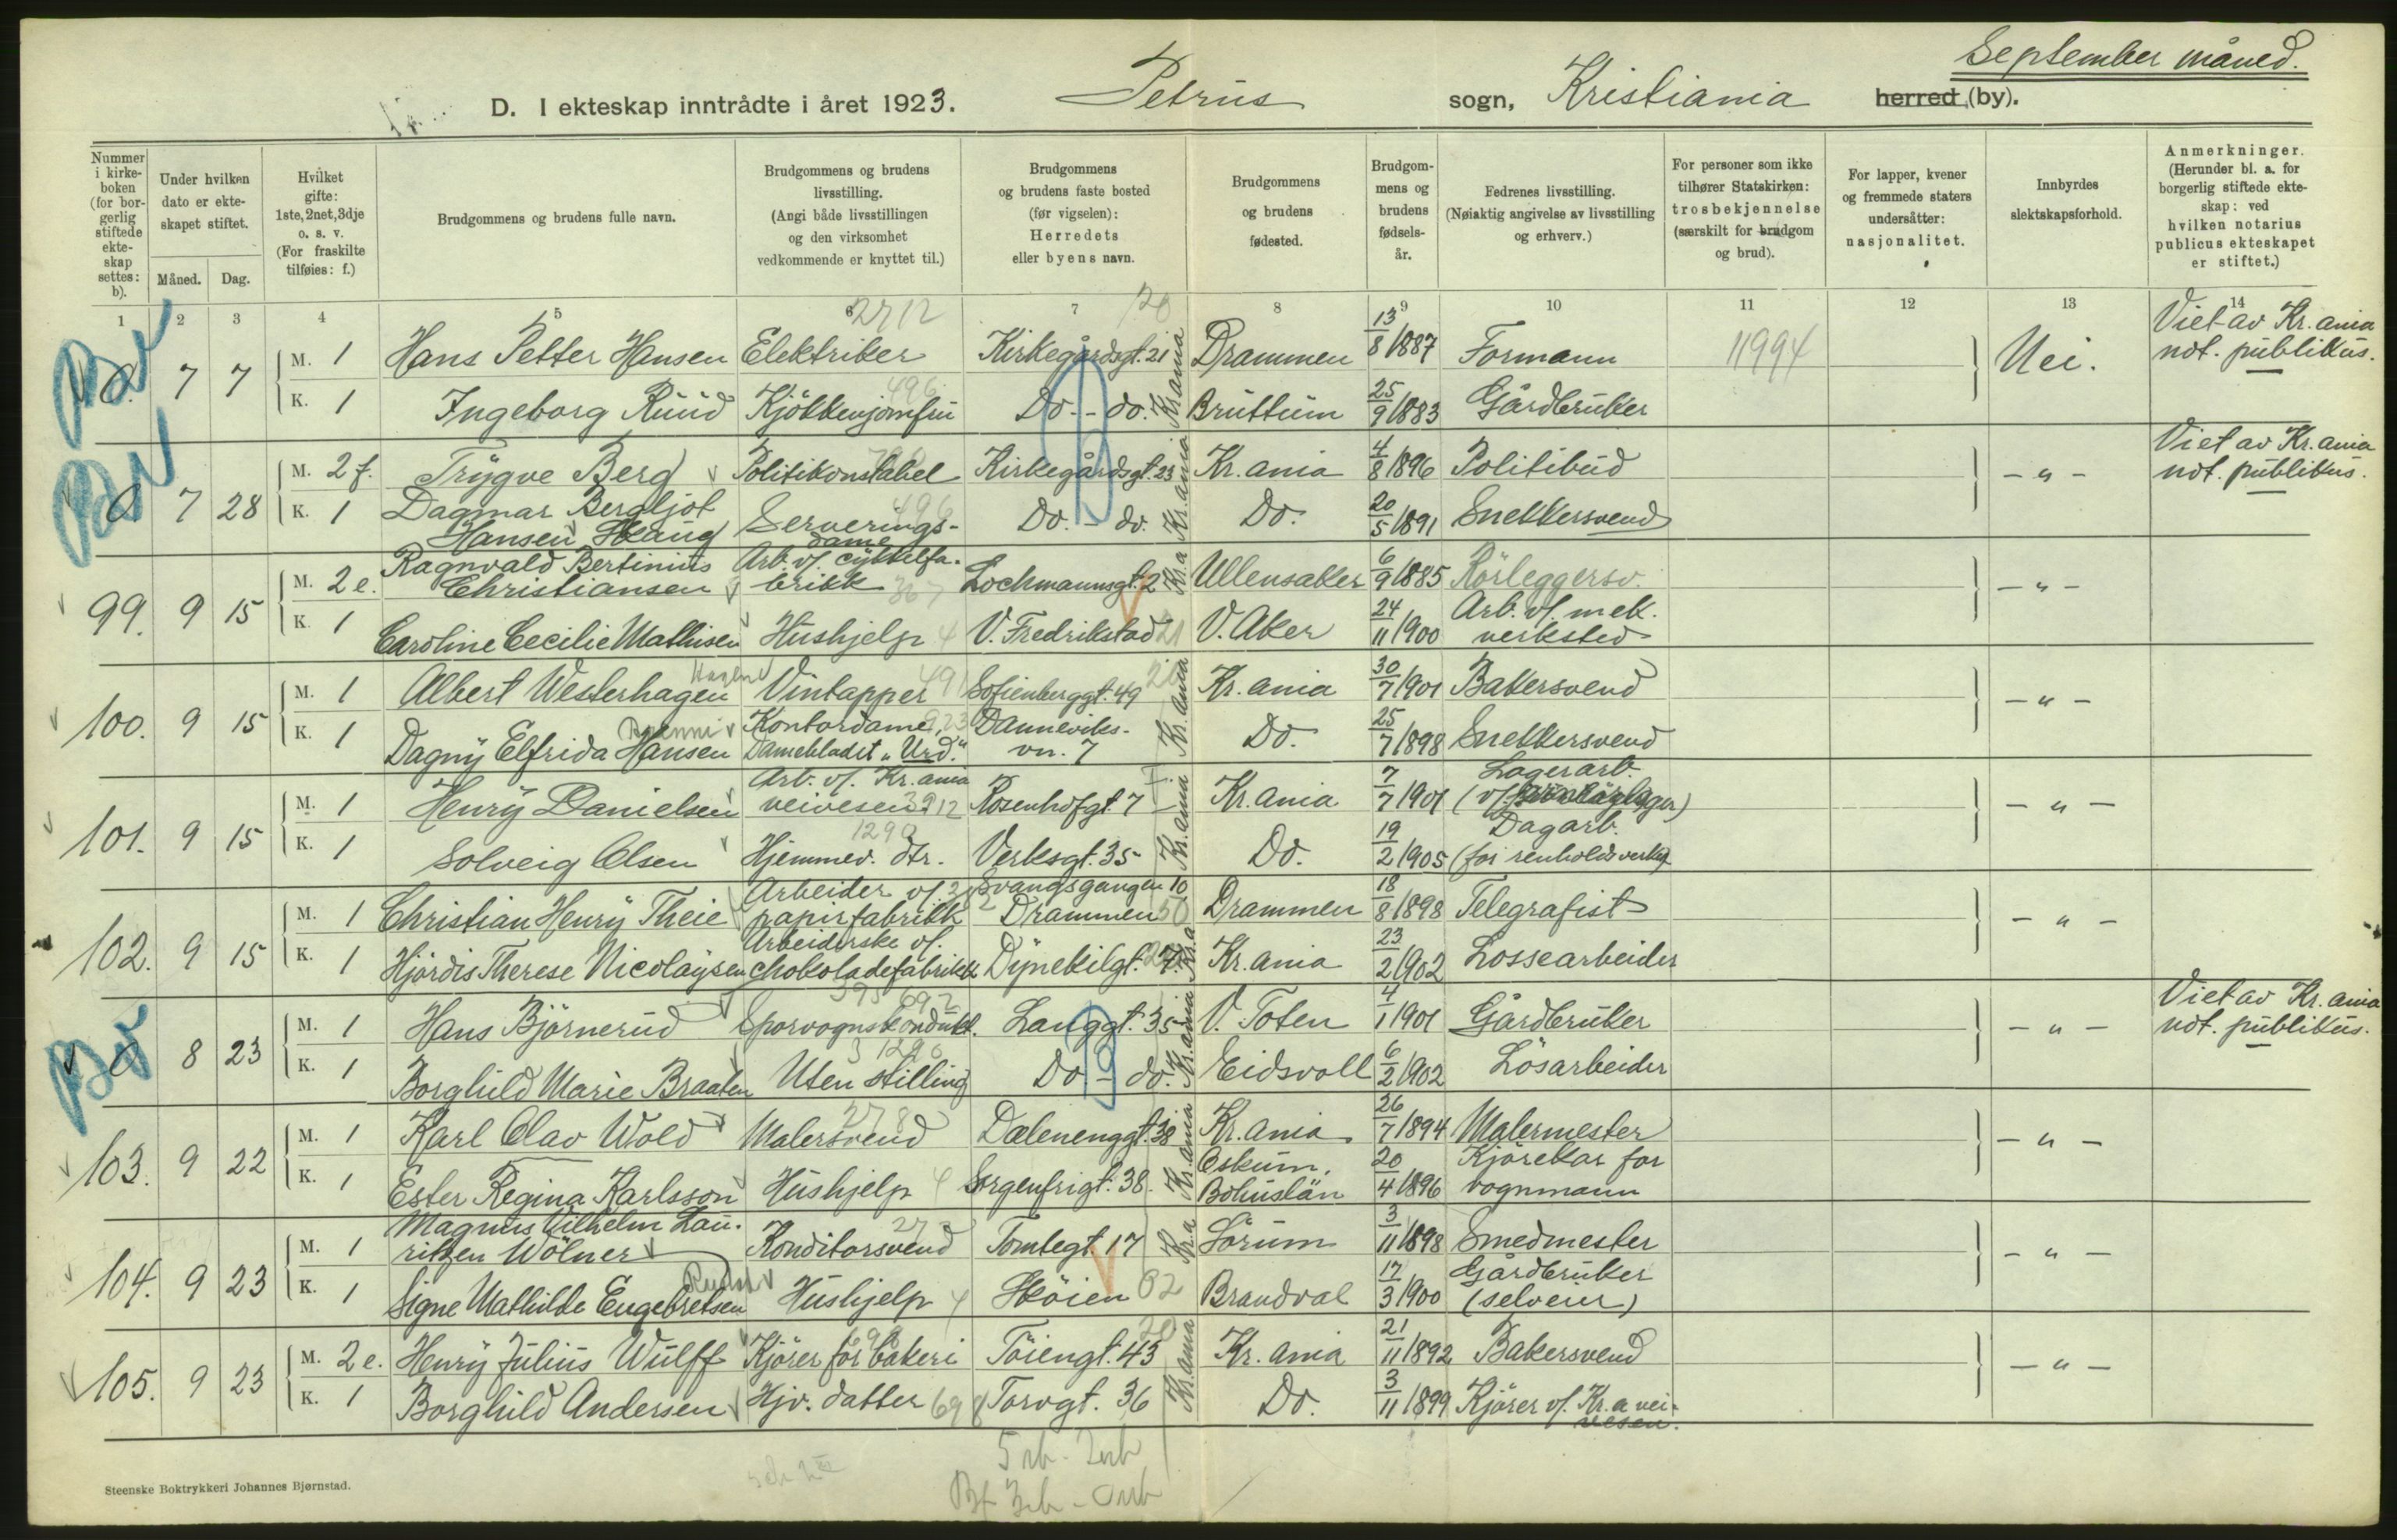 September måned.
D. I ekteskap inntrådte i året 1923. Petrus sogn, Kristiania herred (by).
Nummer i kirkeboken (for borgerlig stiftede ekteskap settes: b).
Under hvilken dato er ekteskapet stiftet.
Måned. Dag.
Hvilket gifte: 1ste, 2net, 3dje o. s. v. (For fraskilte tilføies: f.)
Brudgommens og brudens fulle navn.
Brudgommens og brudens livsstilling. (Angi både livsstillingen og den virksomhet vedkommende er knyttet til.)
Brudgommens og brudens faste bosted (før vigselen): Herredets eller byens navn.
Brudgommens og brudens fødested.
Brudgommens og brudens fødselsår.
Fedrenes livsstilling. (Nøiaktig angivelse av livsstilling og erhverv.)
For personer som ikke tilhører Statskirken: trosbekjennelse (særskilt for brudgom og brud).
For lapper, kvener og fremmede staters undersåtter: nasjonalitet.
Innbyrdes slektskapsforhold.
Anmerkninger. (Herunder bl. a. for borgerlig stiftede ekteskap: ved hvilken notarius publicus ekteskapet er stiftet.)
1 2 3 4 5 6 7 8 9 10 11 12 13 14
7 7 M. 1 Hans Petter Hansen Elektriker Kirkegårdsgt. 21 Kr.ania Drammen 13/8 1887 Formann 11994 Nei. Viet av Kr.ania not. publikus.
K. 1 Ingeborg Ruud Kjökkenjomfru Do. - do. Bruttum 25/9 1883 Gårdbruker
7 28 M. 2 f. Trygve Berg Politikonstabel Kirkegårdsgt. 23 Kr.ania Kr.ania 4/8 1896 Politibud - " - Viet av Kr.ania not. publikus.
K. 1 Dagmar Bergljot Hansen Haug Serveringsdame Do. - do. Do. 20/5 1891 Snekkersvend
99. 9 15 M. 2 e. Ragnvald Bertinius Christiansen Arb. v/. cykkelfabrikk Lochmannsgt. 2 Kr.a Ullensaker 6/9 1885 Rörleggersv. - " -
K. 1 Caroline Cecilie Mathisen Hushjelp V. Fredrikstad V. Aker 24/11 1900 Arb. v/. mek. verksted
100. 9 15 M. 1 Albert Westerhagen Vintapper Sofienberggt. 49 Kr.ania Kr.ania 30/7 1901 Bakersvend - " -
K. 1 Dagny Elfrida Hansen Kontordame, Damebladet "Urd." Danneviksvn. 7 Do. 25/7 1898 Snekkersvend
101. 9 15 M. 1 Henry Danielsen Arb. v/. Kr.ania veivesen Rosenhofgt. 7 Kr.ania Kr.ania 7/7 1901 Lagerarb. - " -
K. 1 Solveig Olsen Hjemmev. dtr. Verksgt. 35 Do. 19/2 1905 Dagarb. (for renholdsverket)
102. 9 15 M. 1 Christian Henry Theie Arbeider v/. papirfabrikk Svangsgangen 10 Drammen Drammen 18/8 1898 Telegrafist - " -
K. 1 Hjördis Therese Nicolaysen Arbeiderske v/. chokoladefabrikk Dynekilgt. Kr.a Kr.ania 23/2 1902 Lossearbeider
8 23 M. 1 Hans Björnerud Sporvognskondukt. Langgt. 35 Kr.ania V. Toten 4/1 1901 Gårdbruker - " - Viet av Kr.ania not. publikus.
K. 1 Borghild Marie Braaten Uten stilling Do - do. Eidsvoll 6/2 1902 Lösarbeider
103. 9 22 M. 1 Karl Olav Wold Malersvend Dælenenggt. 38 Kr.ania Kr.ania 26/7 1894 Malermester - " -
K. 1 Ester Regina Karlsson Hushjelp Sorgenfrigt. 38. Eskum, Bohuslän 20/4 1896 Kjörekar for vognmann
104. 9 23 M. 1 Magnus Vilhelm Lauritzen Wölner Konditorsvend Tomtegt 17 Kr.a Sörum 3/11 1898 Smedmester - " -
K. 1 Signe Mathilde Engebretsen Hushjelp Höien Brandval 17/3 1900 Gårdbruker (selveier)
105. 9 23 M. 2 e. Henry Julius Wulff Kjörer for bakeri Töiengt. 43 Kr.ania Kr.ania 21/11 1892 Bakersvend - " -
K. 1 Borghild Andersen Hjv. datter Torvgt. 36 Do. 3/11 1899 Kjörer v/. Kr.a veivesen.
Steenske Boktrykkeri Johannes Bjørnstad.